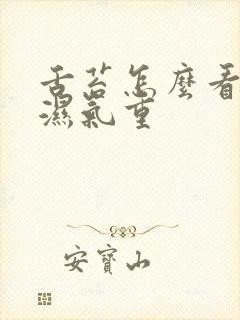 舌苔怎麼看
濕氣重
安寶山